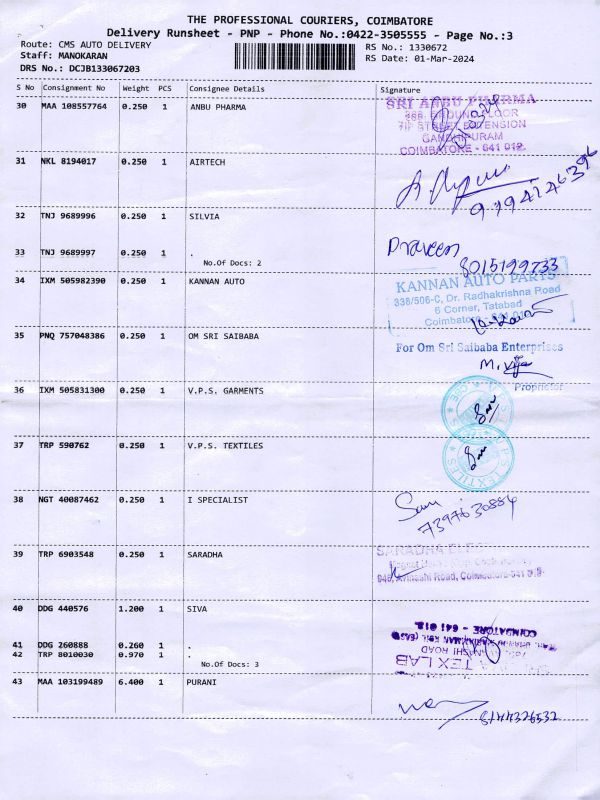 THE PROFESSIONAL COURIERS, COIMBATORE
Delivery Runsheet - PNP - Phone No.:0422-3505555 - Page No.:3
Route: CMS AUTO DELIVERY RS No.: 1330672
Staff: MANOKARAN RS Date: 01-Mar-2024
DRS No.: DCJB133067203
S No Consignment No Weight PCS Consignee Details Signature
30 MAA 108557764 0.250 1 ANBU PHARMA
SRI ANBU PHARMA
GROUND FLOOR
7th STREET EXTENSION
GANDHIPURAM
COIMBATORE - 641 012.
31 NKL 8194017 0.250 1 AIRTECH
9794146396
32 TNJ 9689996 0.250 1 SILVIA
33 TNJ 9689997 0.250 1 .
No.Of Docs: 2
Praveen
8015199733
34 IXM 505982390 0.250 1 KANNAN AUTO
KANNAN AUTO PARTS
338/506-C, Dr. Radhakrishna Road
6 Corner, Tatabad
Coimbatore - 641 012
35 PNQ 757048386 0.250 1 OM SRI SAIBABA
For Om Sri Saibaba Enterprises
Proprietor
36 IXM 505831300 0.250 1 V.P.S. GARMENTS
37 TRP 590762 0.250 1 V.P.S. TEXTILES
TEXTILES
38 NGT 40087462 0.250 1 I SPECIALIST
7397630884
39 TRP 6903548 0.250 1 SARADHA
SARADHA
Avinashi Road, Coimbatore-641
40 DDG 440576 1.200 1 SIVA
41 DDG 260888 0.260 1 .
42 TRP 8010030 0.970 1 .
No.Of Docs: 3
TEX LAB
COIMBATORE - 641 012.
43 MAA 103199489 6.400 1 PURANI
8144326532